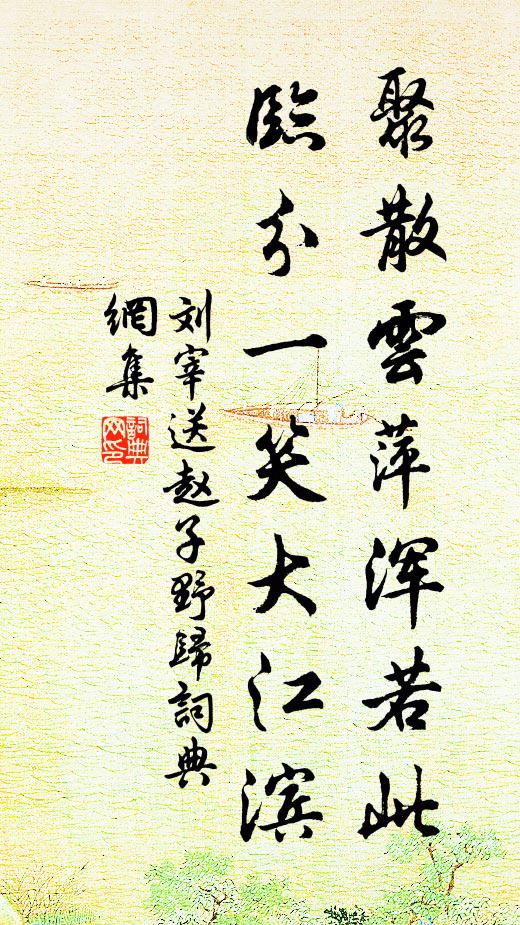 聚散雲萍浑若此
臨分一笑大江滨
刘宰送赵子野歸詞典
網集
詞典
网印